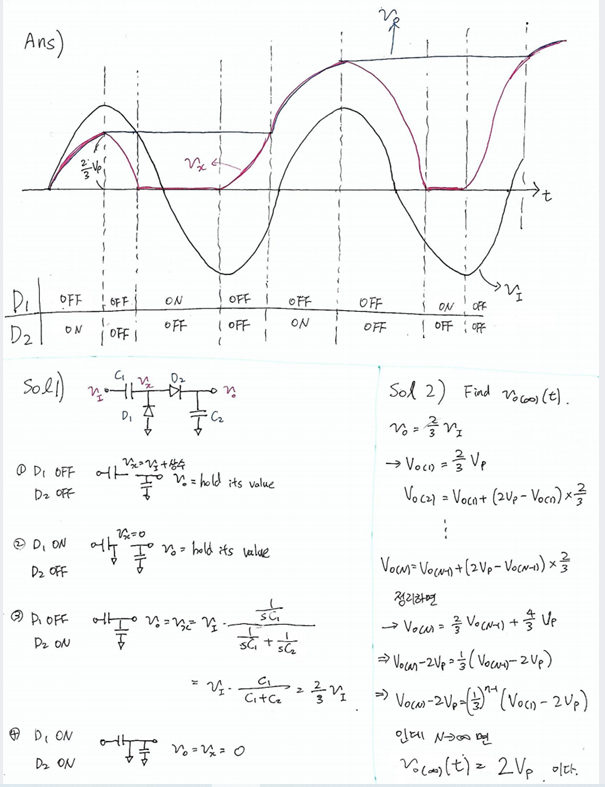 Ans)
v₀
2/3 Vp
vₓ
t
v_I
D₁ OFF OFF ON OFF OFF OFF ON OFF
D₂ ON OFF OFF OFF ON OFF OFF OFF
Sol 1)
v_I C₁ vₓ D₂ v₀
D₁ C₂
① D₁ OFF vₓ=v_I+상수
D₂ OFF v₀ = hold its value
② D₁ ON vₓ=0
D₂ OFF v₀ = hold its value
③ D₁ OFF v₀=vₓ= v_I · (1/sC₁)/(1/sC₁ + 1/sC₂)
D₂ ON
= v_I · C₁/(C₁+C₂) = 2/3 v_I
④ D₁ ON
D₂ ON v₀ = vₓ = 0
Sol 2) Find v₀(∞)(t).
v₀ = 2/3 v_I
→ V₀(1) = 2/3 Vp
V₀(2) = V₀(1) + (2Vp - V₀(1)) × 2/3
⋮
V₀(N) = V₀(N-1) + (2Vp - V₀(N-1)) × 2/3
정리하면
→ V₀(N) = 2/3 V₀(N-1) + 4/3 Vp
⇒ V₀(N) - 2Vp = 1/3 (V₀(N-1) - 2Vp)
⇒ V₀(N) - 2Vp = (1/3)ⁿ⁻¹ (V₀(1) - 2Vp)
인데 N→∞ 면
v₀(∞)(t) = 2Vp 이다.